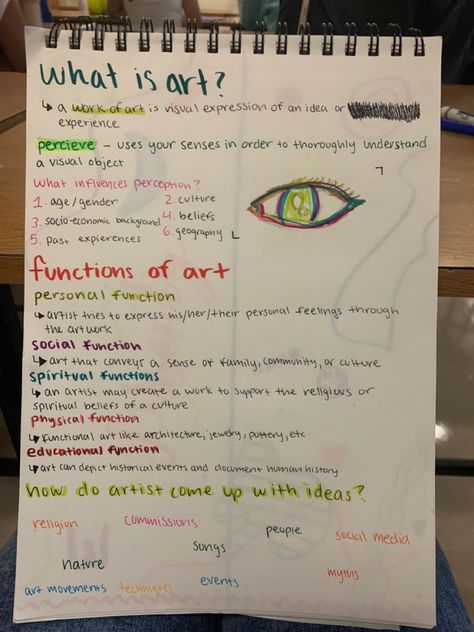 what is art?
↳ a work of art is visual expression of an idea or
experience
percieve - uses your senses in order to thoroughly understand
a visual object
what influences perception?
1. age / gender 2. culture
3. socio-economic background 4. beliefs
5. past expierences 6. geography
functions of art
personal function
↳ artist tries to express his/her/their personal feelings through
the art work
social function
↳ art that conveys a sense of family, community, or culture
spiritual functions
↳ an artist may create a work to support the religious or
spiritual beliefs of a culture
physical function
↳ functional art like architecture, jewelry, pottery, etc.
educational function
↳ art can depict historical events and document human history
how do artist come up with ideas?
religion commissions people social media
songs
nature myths
art movements techniques events